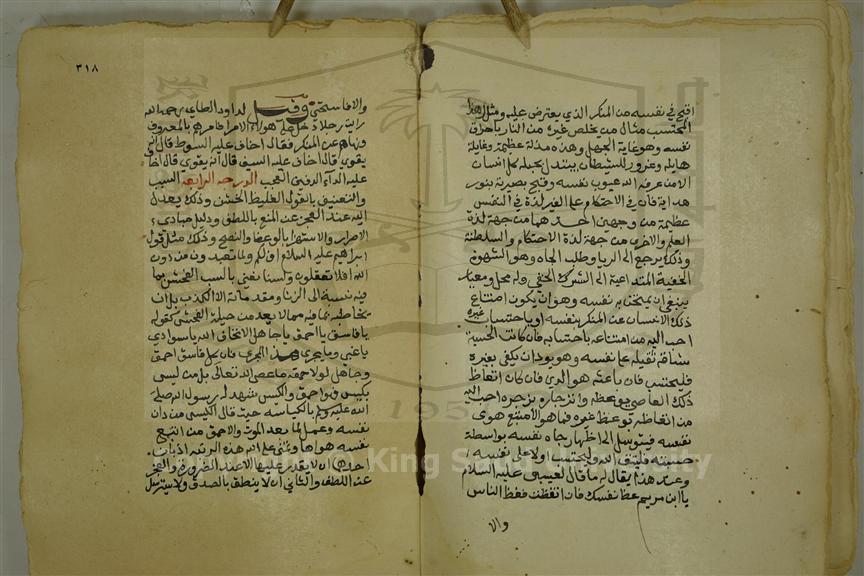 اقبح في نفسه من المنكر الذي يعترض عليه ومثل هذا
المحتسب مثال من يخلص غيره من النار باحراق
نفسه وهو غاية الجهل وهذه مذلة عظيمة وغايلة
هايلة وغرور للشيطان يتدلى بحبله كل انسان
الا من عرفه الله عيوب نفسه وفتح بصيرته بنور
هدايته فان في الاحتكام على الغير لذة في النفس
عظيمة من وجهين احدهما من جهة لذة
العلم والاخرى من جهة لذة الاحتكام والسلطنة
وذلك يرجع الى الريا وطلب الجاه وهو الشهوة
الخفية المتداعية الى الشرك الخفي وله محل ومعيار
ينبغي ان يمتحن به نفسه وهو ان يكون امتناع
ذلك الانسان عن المنكر بنفسه او باحتساب غيره
احب اليه من امتناعه باحتسابه فان كانت الحسبة
شاقة ثقيلة على نفسه وهو يود ان يكفى بغيره
فليحتسب فان باعثه هو الدين فان كان اتعاظ
ذلك العاصي بوعظه وانزجاره بزجره احب اليه
من اتعاظه بوعظ غيره فما هو الا متبع هوى
نفسه فيتوسل الى اظهار جاه نفسه بواسطة
حسبته فليتق الله وليحتسب اولا على نفسه
وعند هذا يقال له ما قال لعيسى عليه السلام
يا ابن مريم عظ نفسك فان اتعظت فعظ الناس
والا
٣١٨
والا فاستحي وقيل لداود الطاي رحمه الله
رايت رجلا دخل على هولاء الامرا فامرهم بالمعروف
ونهاهم عن المنكر فقال اخاف عليه السوط قال انه
يقوى قال اخاف عليه السيف قال انه يقوى قال اخاف
عليه الداء الدفين العجب الدرجه الرابعه السب
والتعنيف بالقول الغليظ الخشن وذلك يعدل
اليه عند العجز عن المنع باللطف ودليل مبادي
الاصرار والاستهزا بالوعظ والنصح وذلك مثل قول
ابراهيم عليه السلام اف لكم ولما تعبدون من دون
الله افلا تعقلون ولسنا نعني بالسب الفحش بما
فيه نسبة الى الزنا ومقدماته الا الكذب بل ان
يخاطبه بما فيه مما لا يعد من جملة الفحش كقوله
يا فاسق يا احمق يا جاهل الا تخاف الله يا سوادي
يا غبي وما يجري هذا المجرى فان كل فاسق احمق
وجاهل لولا حمقه ما عصى الله تعالى بل من ليس
بكيس فهو احمق والكيس شهد له رسول الله صلى
الله عليه وسلم بالكياسة حيث قال الكيس من دان
نفسه وعمل لما بعد الموت والاحمق من اتبع
نفسه هواها وتمنى على الله هذه الرتبه ادبان
احدهما ان لا يقدم عليها الا عند الضرورة والعجز
عند اللطف والثاني ان لا ينطق بالصدق ولا يسترسل
1957
© King Saud University